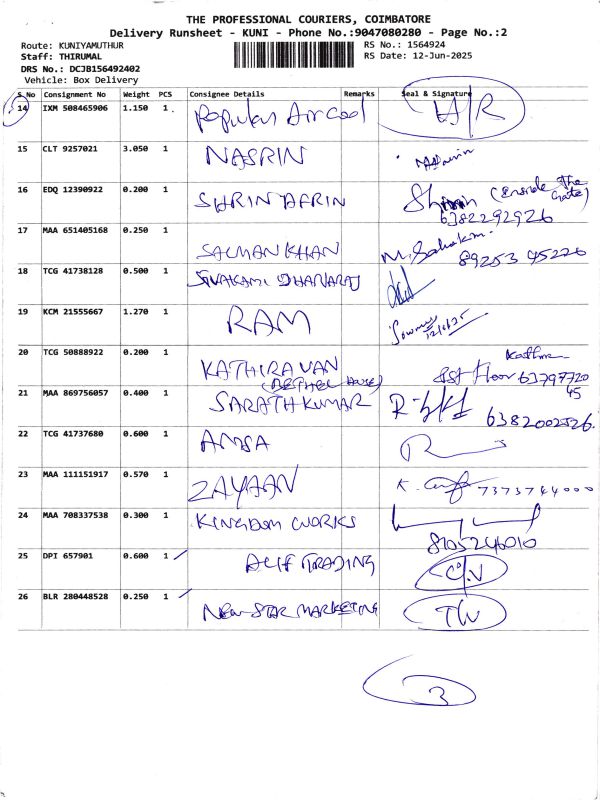 THE PROFESSIONAL COURIERS, COIMBATORE
Delivery Runsheet - KUNI - Phone No.:9047080280 - Page No.:2
Route: KUNIYAMUTHUR RS No.: 1564924
Staff: THIRUMAL RS Date: 12-Jun-2025
DRS No.: DCJB156492402
Vehicle: Box Delivery
S No Consignment No Weight PCS Consignee Details Remarks Seal & Signature
14 IXM 508465906 1.150 1 Popular Aircool
15 CLT 9257021 3.050 1 NASRIN
16 EDQ 12390922 0.200 1 SHRIN AFRIN (Inside The Gate)
6382292926
17 MAA 651405168 0.250 1 SALMAN KHAN 89253 45226
18 TCG 41738128 0.500 1 SIVAKAMI DHANARAJ
19 KCM 21555667 1.270 1 RAM
12/6/25
20 TCG 50888922 0.200 1 KATHIRAVAN
(BETHEL HOUSE) 1st floor 63797720
45
21 MAA 869756057 0.400 1 SARATH KUMAR 6382002526.
22 TCG 41737680 0.600 1 AMSA
23 MAA 111151917 0.570 1 ZAYAAN 7373744000
24 MAA 708337538 0.300 1 KINGDOM WORKS
8105246010
25 DPI 657901 0.600 1 ALIF TRADING
26 BLR 280448528 0.250 1 NEW STAR MARKETING
3